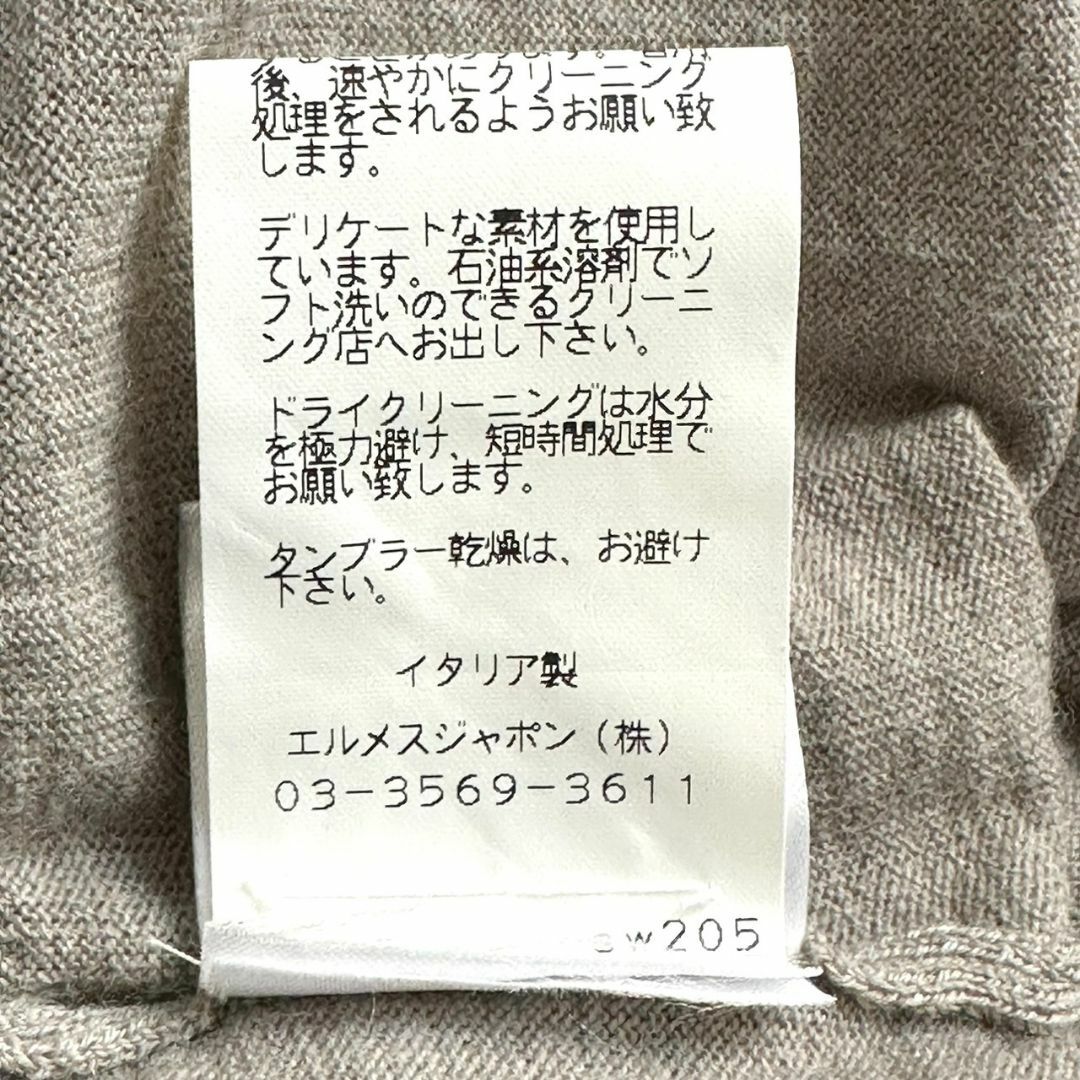 後、速やかにクリーニング
処理をされるようお願い致
します。
デリケートな素材を使用し
ています。石油系溶剤でソ
フト洗いのできるクリーニ
ング店へお出し下さい。
ドライクリーニングは水分
を極力避け、短時間処理で
お願い致します。
タンブラー乾燥は、お避け
下さい。
イタリア製
エルメスジャポン(株)
03-3569-3611
w205